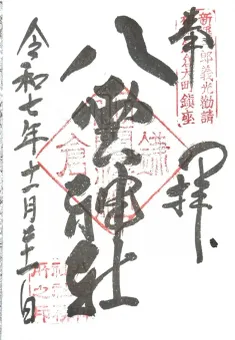 奉拝
新羅三郎義光勧請
鎌倉大町鎮座
八雲神社
鎌倉
令和七年十一月二十一日